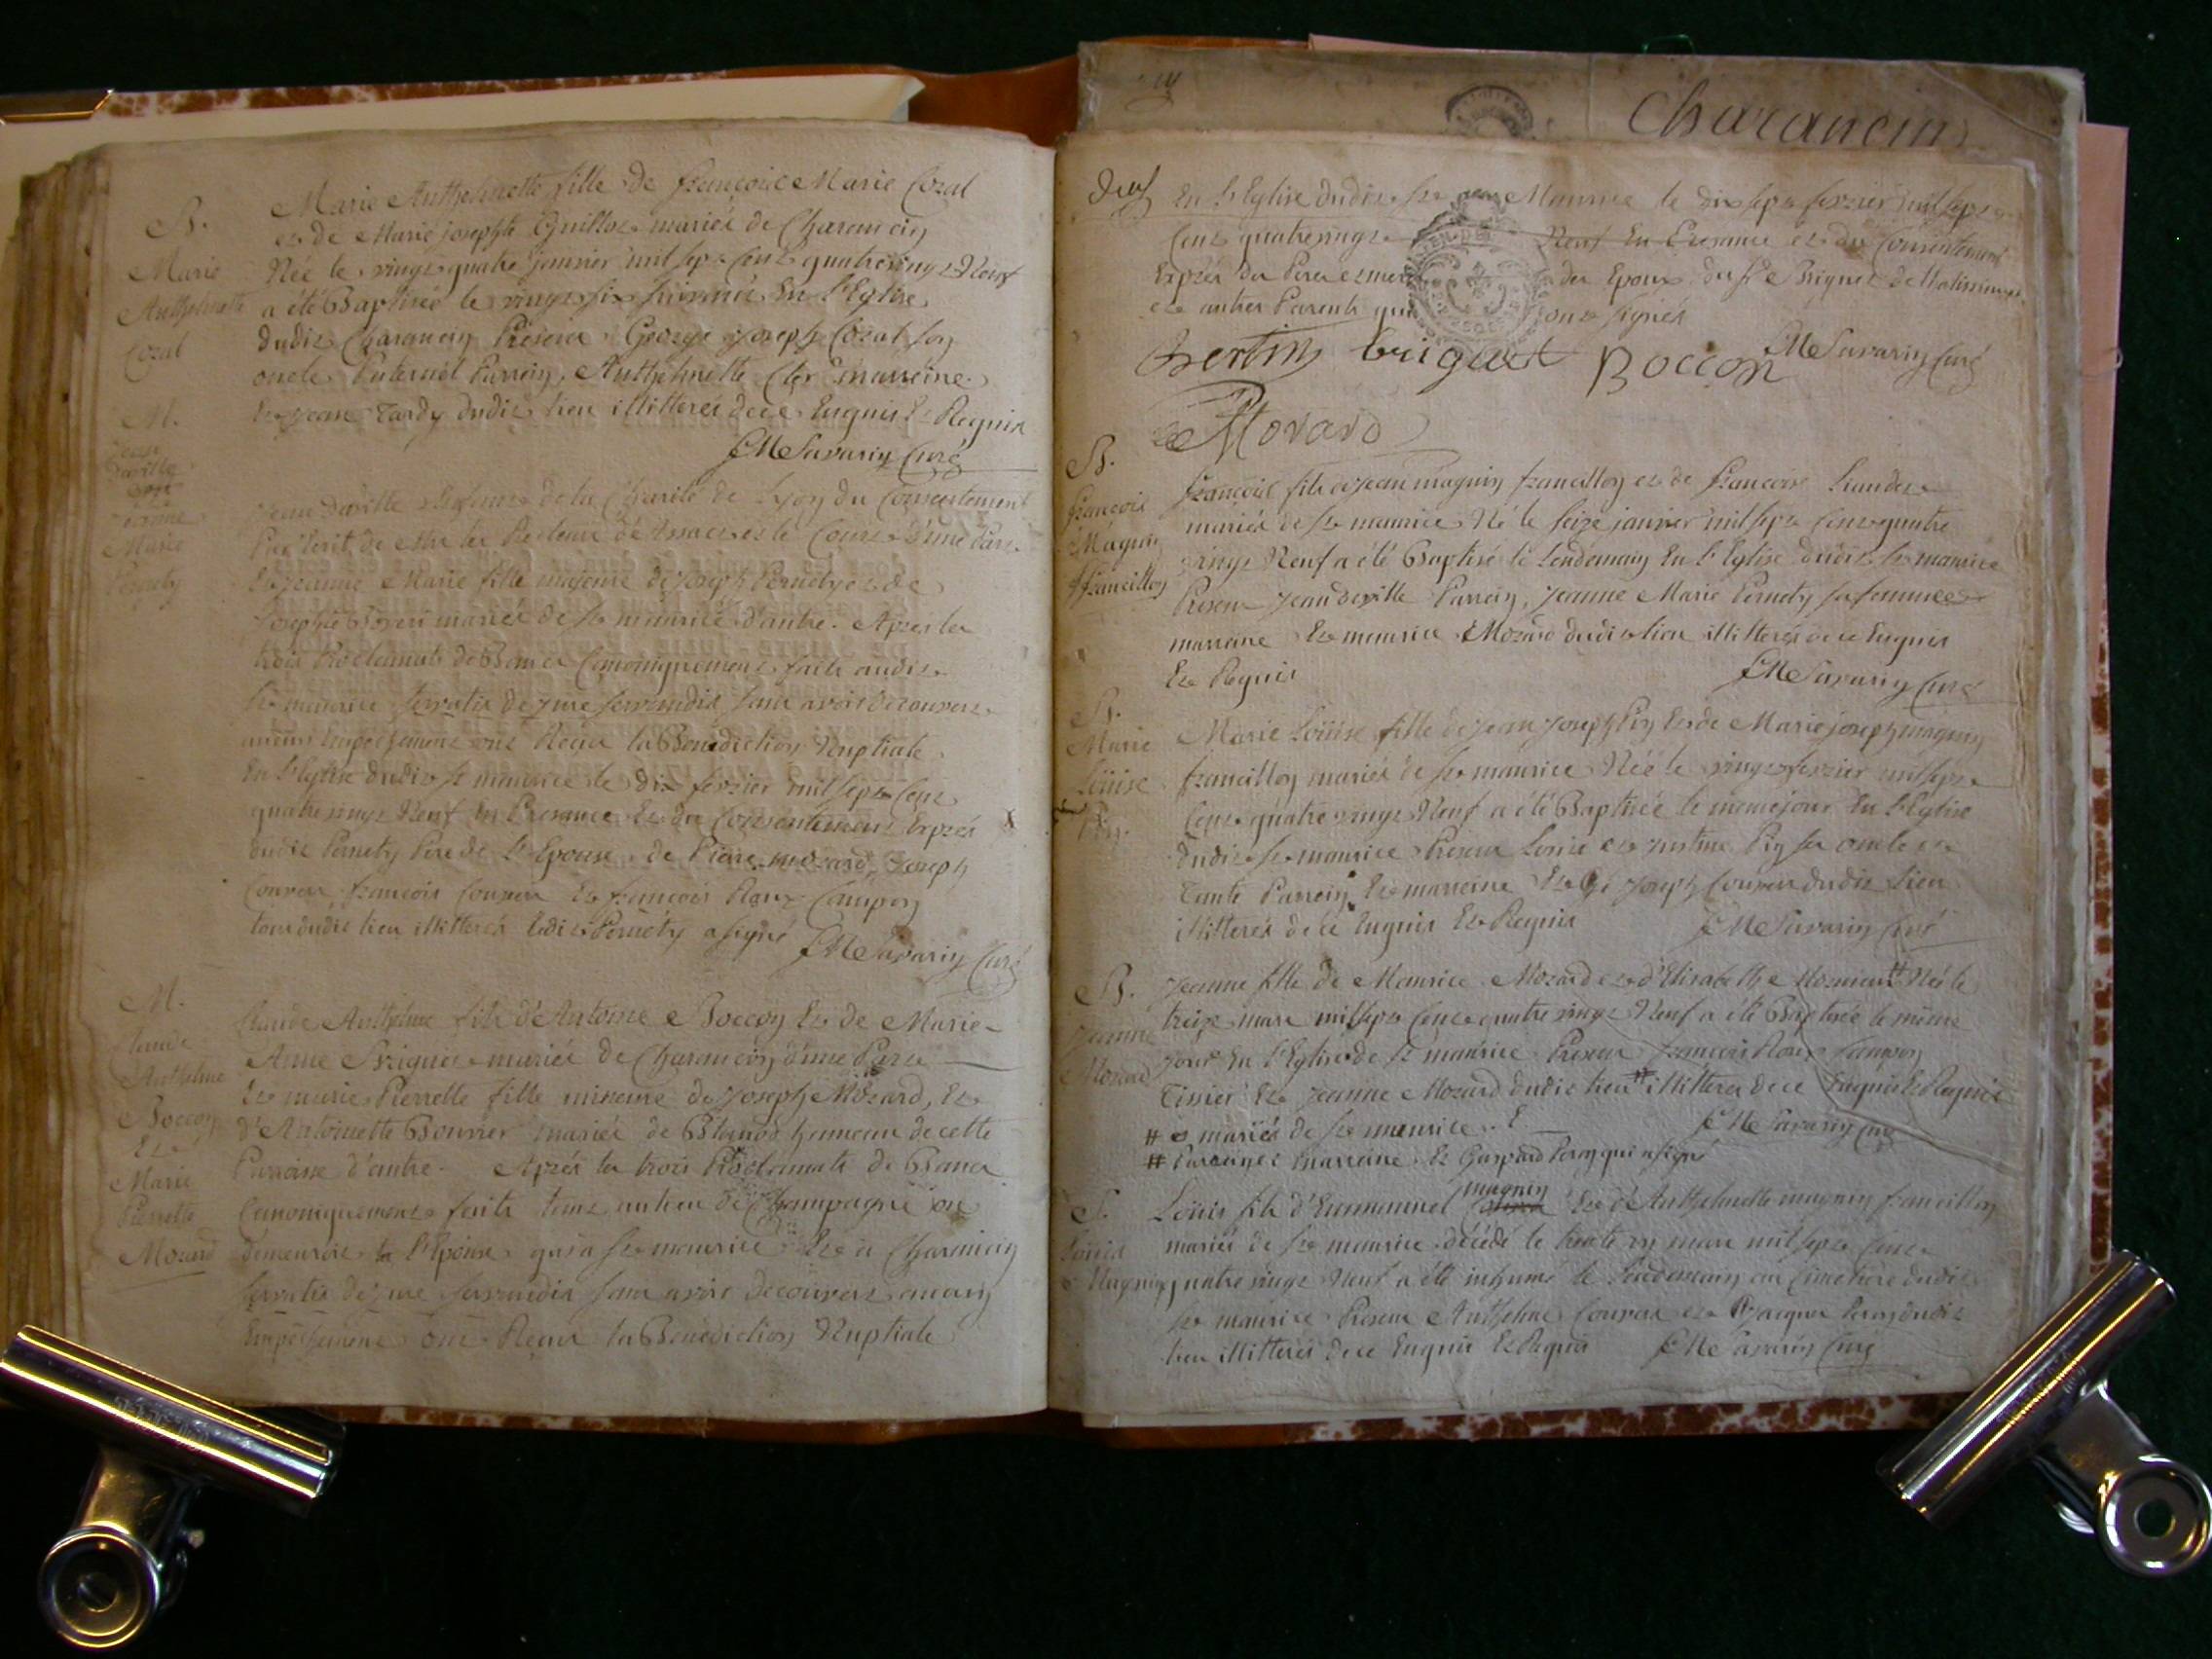 B.
Marie
Anthelmette
Cozat
Marie Anthelmette fille de françois Marie Cozat
et de Marie josephte Guillot mariés de Charancin
Née le vingt quatre janvier mil sept cent quatrevingt Neuf
a été Baptisée le vingt six suivant En l'Eglise
dudit Charancin Présens George joseph Cozat son
oncle Paternel Parrein, Anthelmette Cler marreine
Et jean Tardy dudit lieu illitterés de ce Enquis Et Requis
JM Savarin Curé
M.
Jean
Daville
Jeanne
Marie
Pernety
Jean Daville Enfant de la Charité de Lyon du Consentement
Par Ecrit de
Et Jeanne Marie fille majeure de joseph Pernety et de
josephte mariés de St maurice d'autre. Après les
trois Proclamats de Bans Canoniquement faits audit
St maurice servatis de jure servandis sans avoir découvert
aucun Empêchement ont Reçu la Bénédiction Nuptiale
En l'Eglise dudit St maurice le dix fevrier mil sept cent
quatre vingt Neuf En Presance Et du Consentement Exprés
dudit Pernety Pere de l'Epouse, de Pierre mozard, joseph
françois Et françois Roux Campon
tous dudit lieu illitterés ledit Pernety a signé JM Savarin Curé
M.
Claude
Anthelme
Boccon
Et
Marie
Pierrette
Mozard
Claude Anthelme fils d'Antoine Boccon Et de Marie
Anne Briguet mariés de Charancin d'une Part
Et marie Pierrette fille mineure de joseph Mozard, Et
d'Antoinette Bouvier mariés de hameau de cette
Paroisse d'autre. Après les trois Proclamats de Bans
Canoniquement faits tant au lieu de Champagne ou
demeuroit la l'Epouse qu'a St maurice Et a Charancin
servatis de jure servandis sans avoir découvert aucun
Empêchement ont Reçu la Bénédiction Nuptiale
Charancin
Deuf
En l'Eglise dudit St Maurice le dix sept fevrier mil sept
Cent quatrevingt Neuf En Presance et du Consentement
Exprés des Peres et meres des Epoux du Sr Briguet
et autres Parents qui ont signés
Bertin briguet Boccon JM Savarin Curé
Morard
B.
françois
Magnin
francillon
françois fils de jean magnin francillon et de françoise
mariés de St maurice Né le seize janvier mil sept cent quatre
vingt Neuf a été Baptisé le lendemain En l'Eglise dudit St maurice
Presens jean Daville Parrein, jeanne Marie Pernety sa femme
marraine Et maurice Mozard dudit lieu illitterés de ce Enquis
Et Requis JM Savarin Curé
B.
Marie
Loüise
Pin.
Marie Loüise fille de jean joseph Pin Et de Marie joseph magnin
francillon mariés de St maurice Née le vingt fevrier mil sept
Cent quatre vingt Neuf a été Baptisée le meme jour En l'Eglise
dudit St maurice Presens Loüis et justine Pin ses oncle et
Tante Parrein Et marreine Et joseph dudit lieu
illitterés de ce Enquis Et Requis JM Savarin Curé
B.
Jeanne
Mozard
Jeanne fille de Maurice Mozard et d'Elisabeth # Née le
treize mars mil sept cent quatre vingt Neuf a été Baptisée le même
jour En l'Eglise de St maurice Presens françois Roux Campon
Tissier Et Jeanne Mozard dudit lieu # illitterés de ce Enquis Et Requis
# mariés de St maurice. JM Savarin Curé
# Parein et marreine. Et Gaspard qui a signé
S.
Loüis
Magnin
Loüis fils d'Emmanuel magnin Et d'Anthelmette magnin francillon
mariés de St maurice décédé le trente un mars mil sept cent
quatre vingt Neuf a été inhumé le lendemain au Cimetiere dudit
St maurice Presens Anthelme et Jacques dudit
lieu illitterés de ce Enquis Et Requis JM Savarin Curé